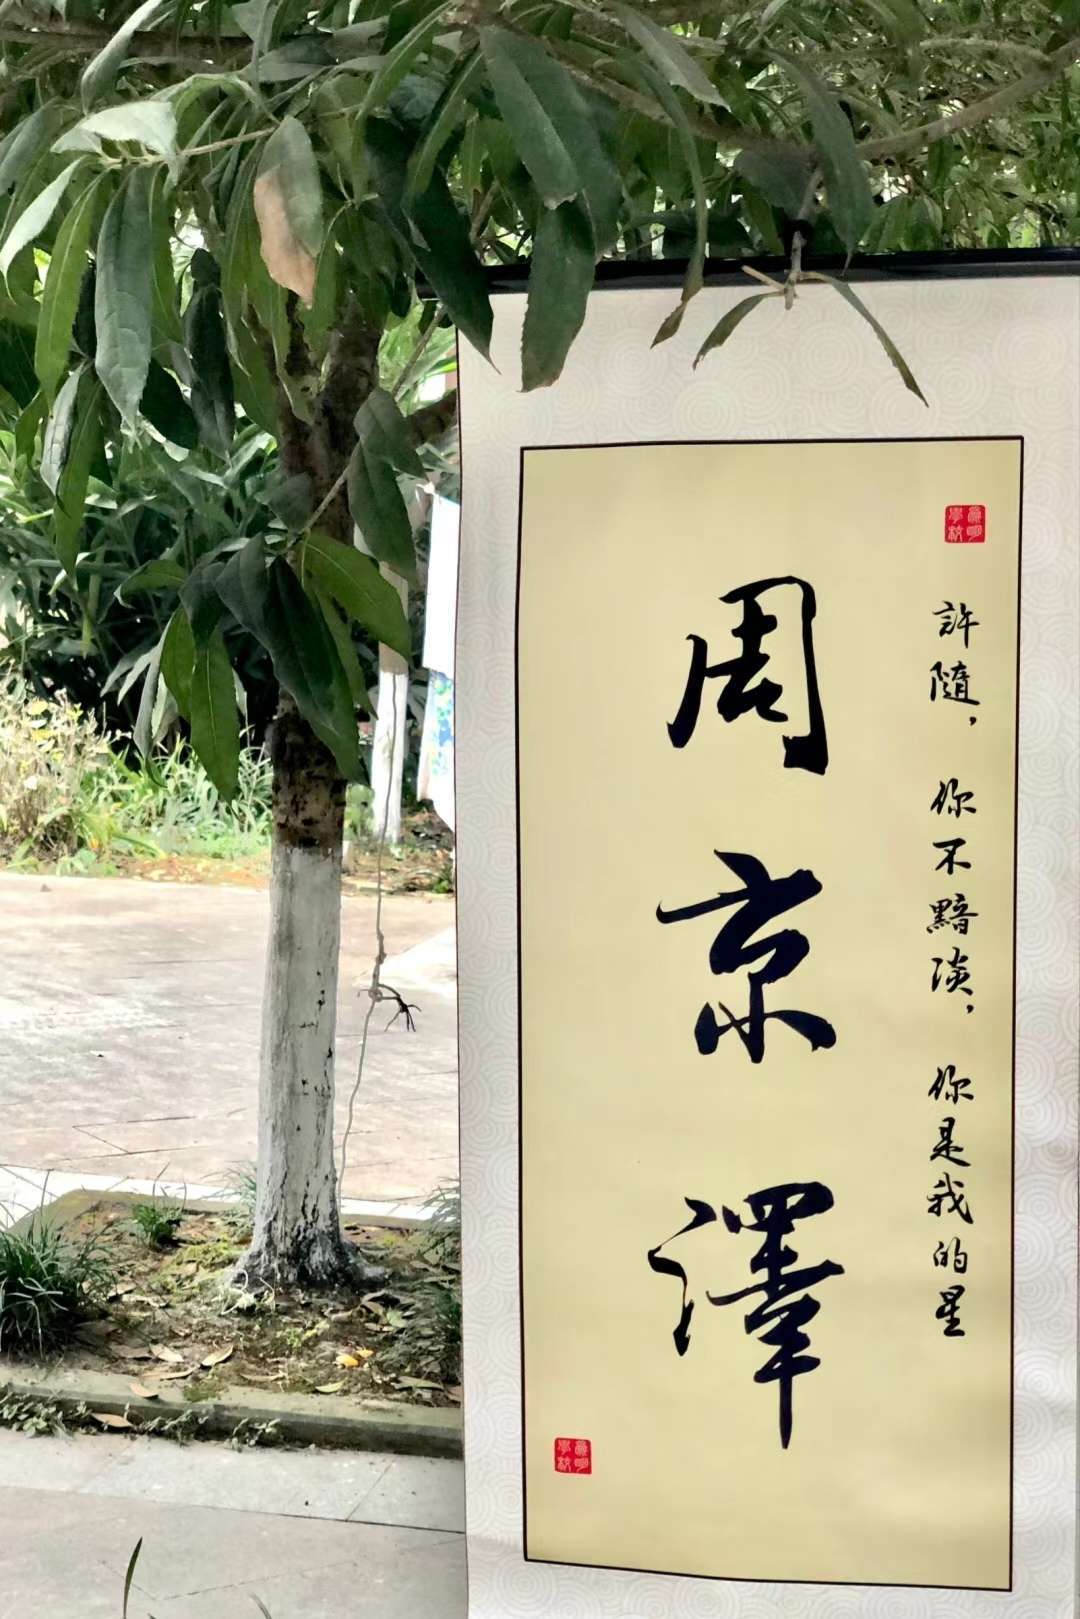 許隨，你不黯淡，你是我的星
周京澤